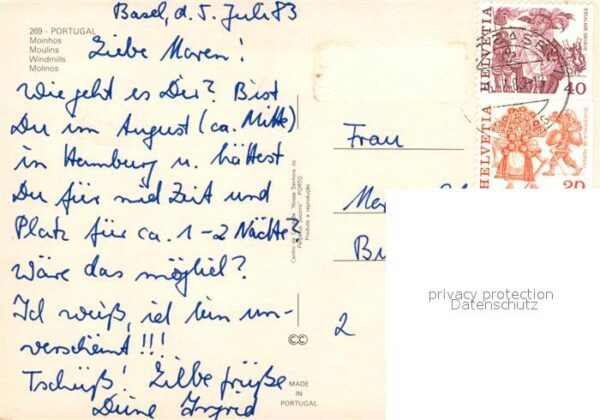 Basel, d. 5. Juli 83
269 - PORTUGAL
Moinhos
Moulins
Windmills
Molinos
Liebe Maren!
Wie geht es Dir? Bist
Du im August (ca. Mitte)
in Hamburg u. hättest
Du für mich Zeit und
Platz für ca. 1-2 Nächte?
Wäre das möglich?
Ich weiß, ich bin un-
verschämt!!!
Tschüß! Liebe Grüße
Deine Ingrid
MADE
IN
PORTUGAL
PORTO
Produto e reprodução
CC
Frau
2
HELVETIA
40
BASEL
HELVETIA
20
privacy protection
Datenschutz